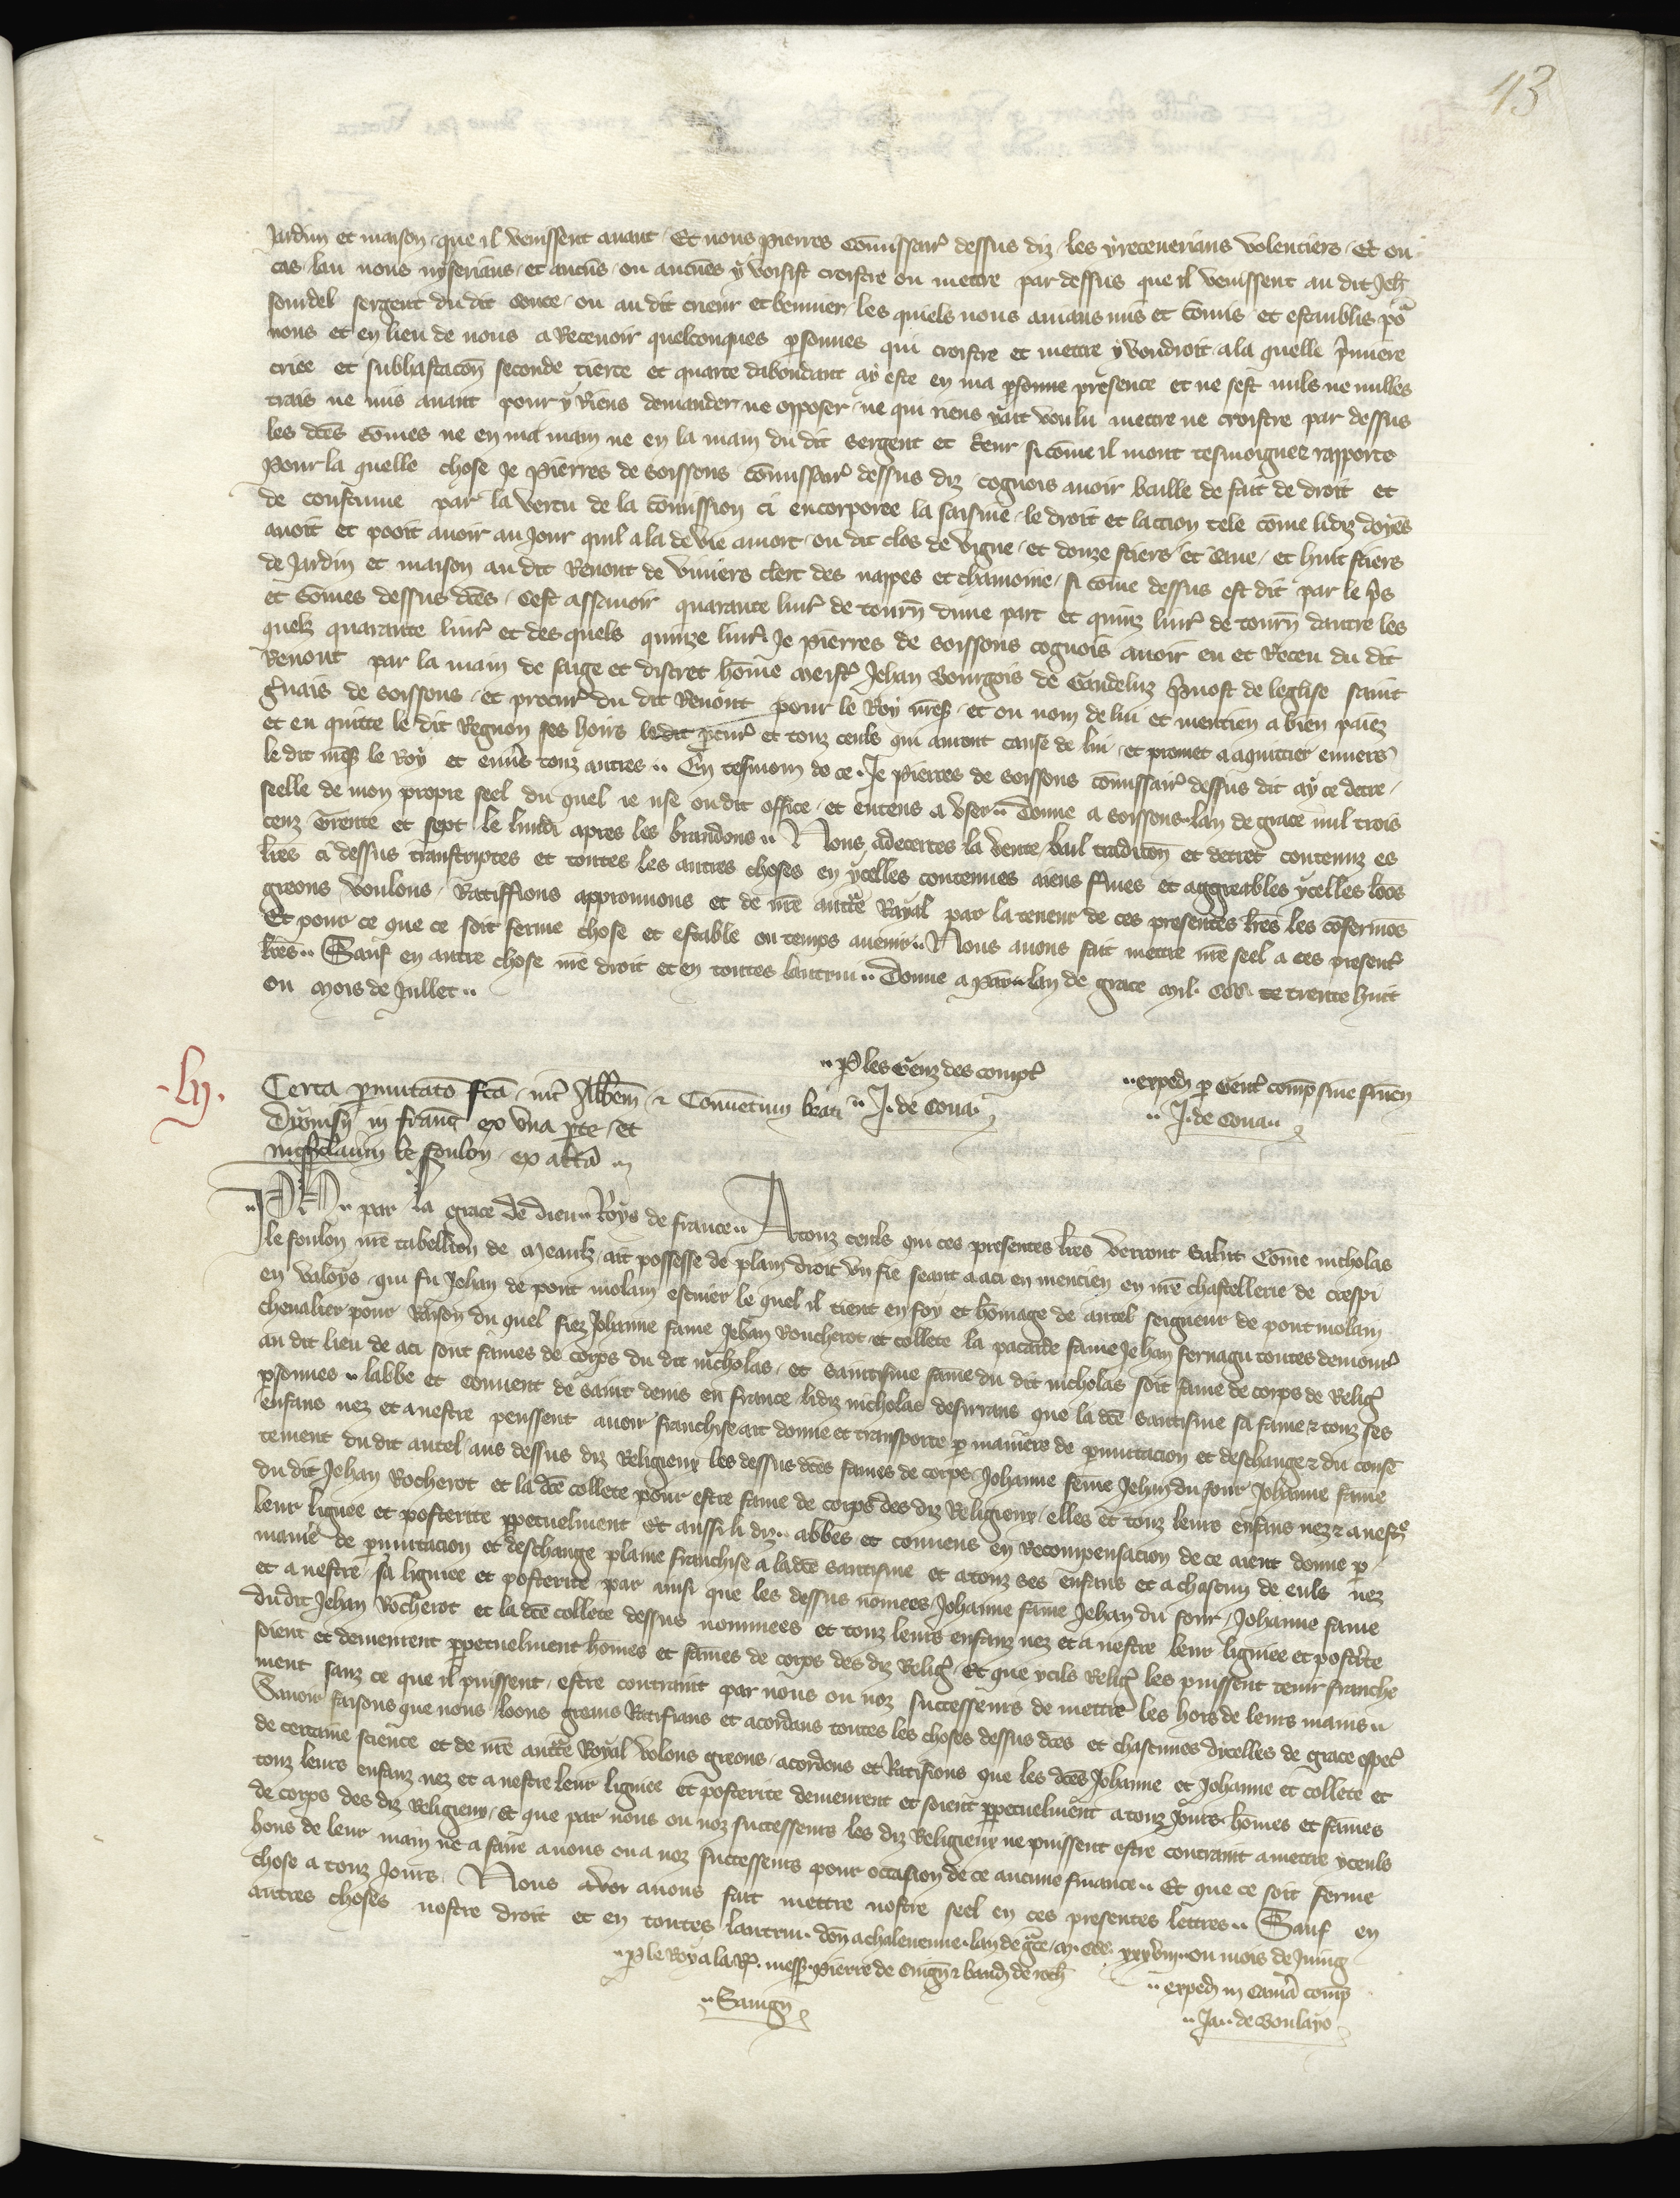 43
Jardin et maison que il venissent avant Et nous pierres Comissair dessus diz les y receverians volentiers Et ou
cas lau nous ny serians et aucuns ou aucunes y vosist croistre ou mettre par dessus que il venissent au dit Jeh
sergent du dit conte ou au dit crieur et les quiels nous avians mis et comis et establis por
nous et en lieu de nous a Recevoir quelconques psonnes qui croistre et mettre y vendroit a la quelle pmiere
criee et subhastacon seconde tierce et quarte dabondant ay este en ma psonne presence et ne sest nuls ne nulles
trais ne mis avant pour y Riens demander ne opposer ne qui riens y ait voulu mettre ne croistre par dessus
les dces somes ne en ma main ne en la main du dit sergent et si come il mont tesmoignie rapporte
Pour la quelle chose Je pierres de soissons Comissair dessus diz cognois avoir baille de fait de droit et
de coustume par la vertu de la comission ci encorporee la saisine le droit et laction tele come li diz doyens
avoit et pooit avoir au Jour quil ala de vie a mort ou dit clos de vigne et douze stiers et et huit stiers
de Jardin et maison au dit Renout de viviers clerc des nappes et chanoine si come dessus est dit par le pris
et somes dessus dces cest assavoir quarante livr de tourn dune part et quinz livr de tourn dautre les
quelz quarante livr et des quels quinze livr Je pierres de soissons cognois avoir eu et Receu du dit
Renout par la main de saige et discret home meistr Jehan Bourgois de Gandeluz pvost de leglise saint
gvais de soissons et procur du dit Renout pour le Roy nres et ou nom de lui et mentien a bien paiez
et en quitte le dit Regnou ses hoirs le dit pcur et touz ceuls qui auront cause de lui et promet a aquittier envers
le dit nres le Roy et envs touz autres En tesmoin de ce Je pierres de soissons comissair dessus dit ay ce decre
seelle de mon propre seel du quel ie use ou dit office et entens a user Donne a soissons lan de grace mil trois
cenz trente et sept le lundi apres les brandons Nous adecertes la vente bail tradicon et decret contenuz es
lres ci dessus transcriptes et toutes les autres choses en ycelles contenues aiens fmes et aggreables ycelles loos
greons voulons Ratiffions approuvons et de nre auctte Royal par la teneur de ces presentes lres les cofermos
Et pour ce que ce soit ferme chose et estable ou temps avenir Nous avons fait mettre nre seel a ces present
lres Sauf en autre chose nre droit et en toutes lautrui Donne a Par lan de grace mil CCC trente huit
ou mois de Jullet
P les Genz des compt
J. de Cona
exped p Gent comp sine finen
J. de Cona
Lij.
Certa pmutato fca int Abbem et Conventum beati
Dyonisii in franc ex una pte et
nicholaum le foulon ex altera
PH par la grace de dieu Roys de france A touz ceuls qui ces presentes lres verront salut Come nicholas
le foulon nre tabellion de meaulz ait possesse de plain droit un fie seant a aci en mentien en nre chastellerie de crespi
en valoys qui fu Jehan de pont molain escuier le quel il tient en foy et homage de autel seigneur de pont molain
chevalier pour Raison du quel fiez Johanne fame Jehan Roucherot et collete la pacarde fame Jehan fernagu toutes demour
au dit lieu de aci sont fames de corps du dit nicholas et santisme fame du dit nicholas soit fame de corps de Relig
psonnes labbe et Convent de saint denis en france li diz nicholas desirrans que la dce santisme sa fame et touz ses
enfans nez et a nestre peussent avoir franchise ait donne et transporte p maniere de pmutacion et deschange et du conse
tement du dit autel aus dessus diz Religieux les dessus dces fames de corps Johanne feme Jehan du four Johanne fame
du dit Jehan Rocherot et la dce collete pour estre fame de corps des diz Religieux elles et touz leurs enfans nez et a nestre
leur liguee et posterite ppetuelment Et aussi li diz abbes et convens en Recompensacion de ce aient donne p
maniere de pmutacion et deschange plaine franchise a la dce santisme et a touz ses enfans et a chascun de euls nez
et a nestre sa ligniee et posterite par ainsi que les dessus nomees Johanne fame Jehan du four Johanne fame
du dit Jehan Rocherot et la dce collete dessus nommees et touz leurs enfanz nez et a nestre leur ligniee et postite
soient et demeurent ppetuelment homes et fames de corps des diz Relig Et que ycils Relig les puissent tenir franche
ment sanz ce que il puissent estre contraint par nous ou noz successeurs de mettre les hors de leurs mains
Savoir faisons que nous loons greans Ratifians et acordans toutes les choses dessus dces et chascunes dicelles de grace espec
de certaine science et de nre auctte Royal volons greons acordons et Ratifions que les dces Johanne et Johanne et collete et
touz leurs enfanz nez et a nestre leur ligniee et posterite demeurent et soient ppetuelment a touz Jours homes et fames
de corps des diz Religieux Et que par nous ou noz successeurs les diz Religieux ne puissent estre contraint a mettre yceuls
hors de leur main ne a faire a nous ou a noz successeurs pour occasion de ce aucune finance Et que ce soit ferme
chose a touz Jours Nous avons fait mettre nostre seel en ces presentes lettres Sauf en
autres choses nostre droit et en toutes lautrui don a chaleuenne lan de gce M CCC xxxviii ou mois de Juing
P le Roy a la R mess pierre de Cuign et baud de roch
Savign
exped in Cama comp
Ja. de Boulayo